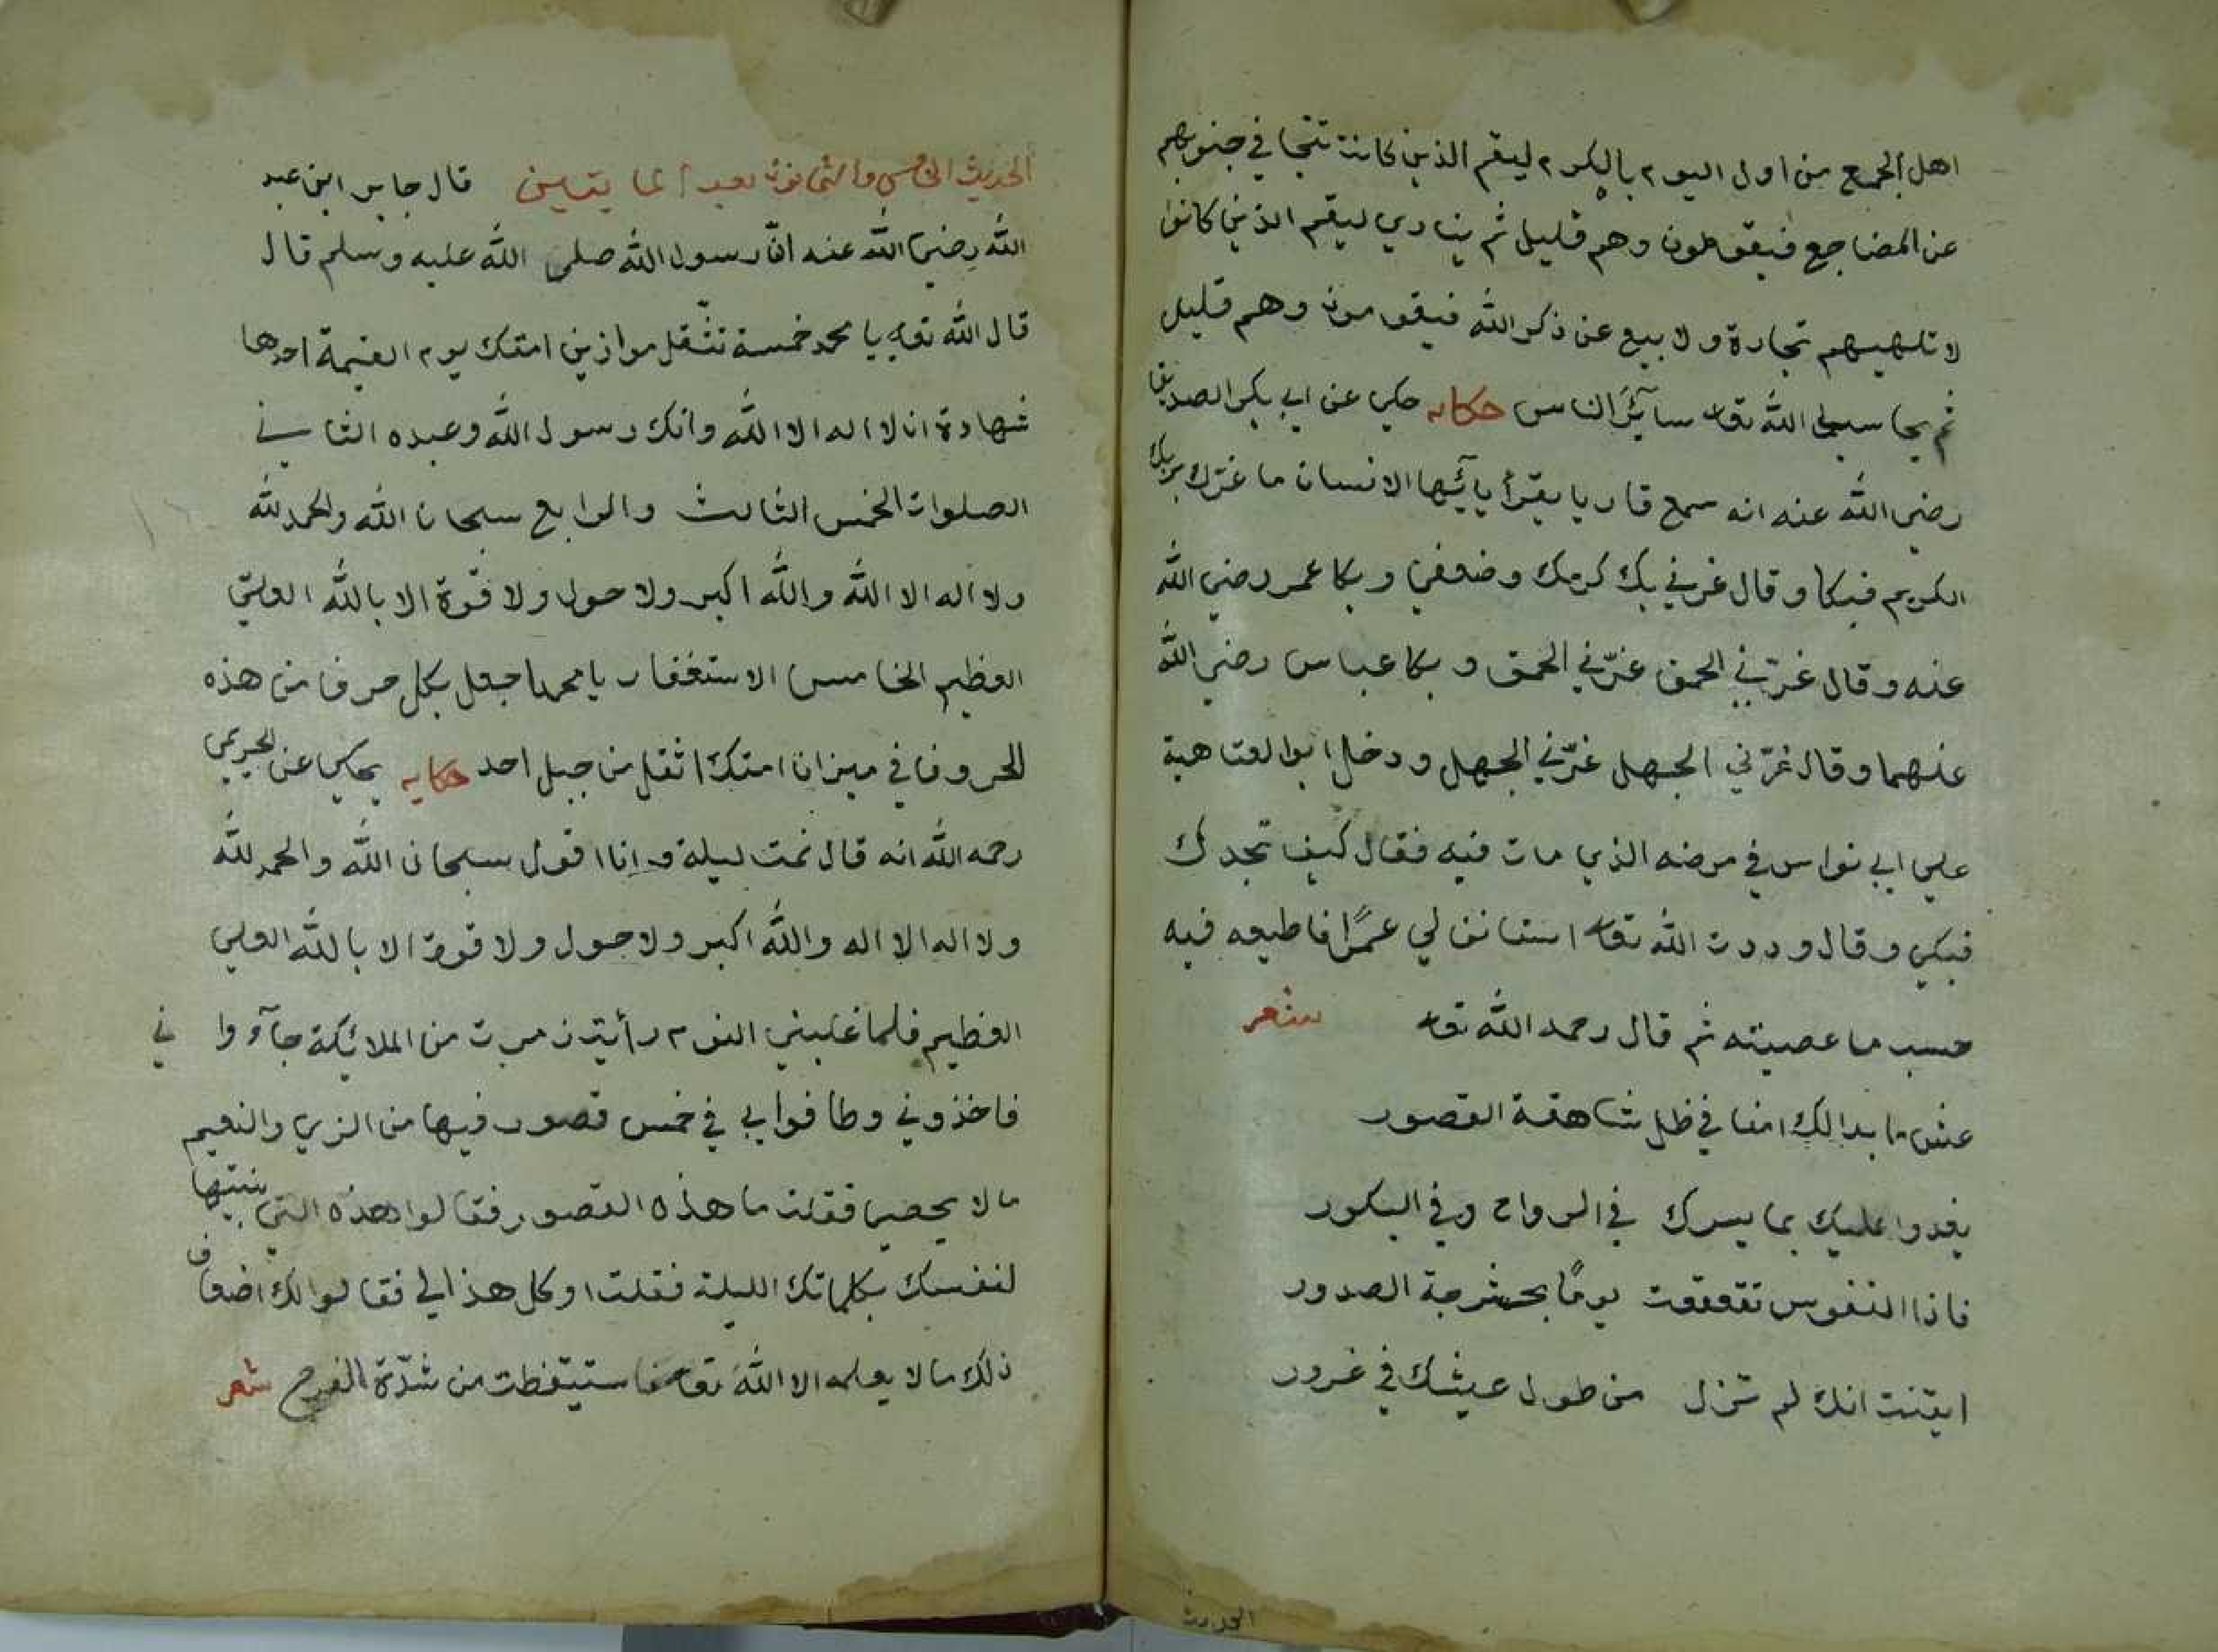 اهل الجمع من اول اليوم بالكرم ليقم الذين كانت تتجا في جنوبهم
عن المضاجع فيقومون وهم قليل ثم ينادي ليقم الذين كانوا
لا تلهيهم تجارة ولا بيع عن ذكر الله فيقومون وهم قليل
ثم يحاسب الله تعا سآئر الناس حكايه حكي عن ابي بكر الصديق
رضي الله عنه انه سمع قاريا يقرأ يآئيها الانسان ما غرّك بربك
الكريم فبكا وقال غرني بك كرمك وضعفي وبكا عمر رضي الله
عنه وقال غرّني الحمق غرّني الحمق وبكا عباس رضي الله
عنهما وقال غرّني الجهل غرّني الجهل ودخل ابو العتاهية
علي ابي نواس في مرضه الذي مات فيه فقال كيف تجدك
فبكي وقال وددت الله تعا استانف لي عمرًا فاطيعه فيه
حسب ما عصيته ثم قال رحمه الله تعا شعر
عش ما بدالك امنا في ظل شاهقة القصور
يغدوا عليك بما يسرك في الرواح وفي البكور
فاذا النفوس تقعقعت يومًا بحشرجة الصدور
ايقنت انك لم تزل من طول عيشك في غرور
الحديث
الحديث الخامس والثمانون بعد المايتين قال جابر ابن عبد
الله رضي الله عنه انّ رسول الله صلى الله عليه وسلم قال
قال الله تعا يا محمد خمسة تثّقل موازين امتك يوم القيمة احدها
شهادة ان لا اله الا الله وانك رسول الله وعبده الثاني
الصلوات الخمس الثالث والرابع سبحان الله والحمد لله
ولا اله الا الله والله اكبر ولا حول ولا قوّة الا بالله العلي
العظيم الخامس الاستغفار يا محمد اجعل بكل حرف من هذه
الحروف في ميزان امتك اثقل من جبل احد حكايه يحكي عن الجريري
رحمه الله انه قال نمت ليلة وانا اقول سبحان الله والحمد لله
ولا اله الا اله والله اكبر ولا حول ولا قوة الا بالله العلي
العظيم فلما غلبني النوم رأيت زمرت من الملائكة جآؤوا ني
فاخذوني وطافوا بي في خمس قصور فيها من الزي والنعيم
ما لا يحصي فقلت ما هذه القصور فقالوا هذه التي بنيتها
لنفسك بكلماتك الليلة فقلت اوكل هذا لي فقالوا لك اضعاف
ذلك ما لا يعلمه الا الله تعا فاستيقظت من شدّة الفرح شعر